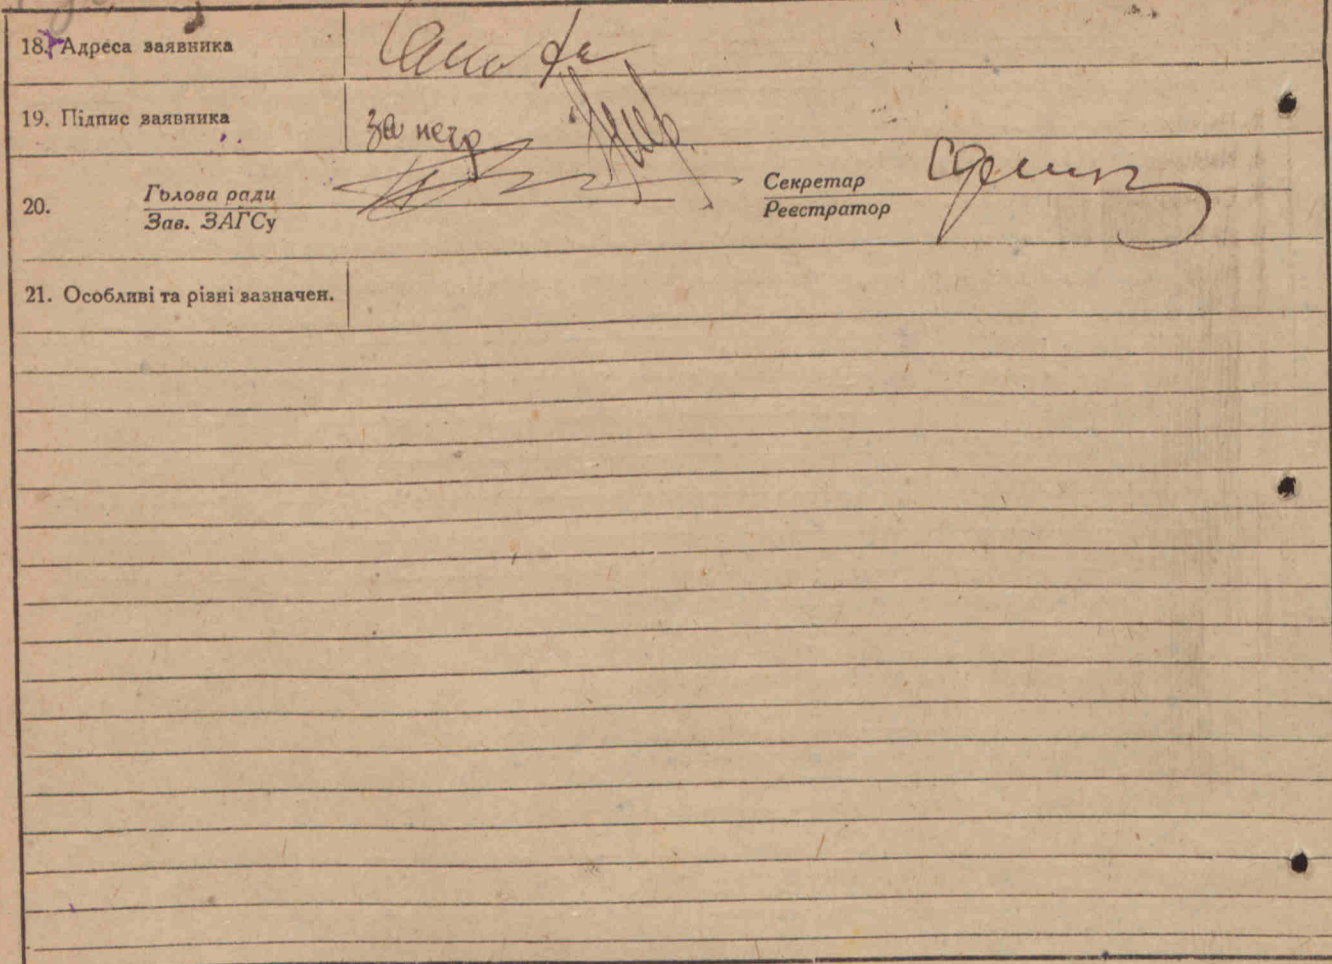 18. Адреса заявника
19. Підпис заявника за него
20. Голова ради Секретар
Зав. ЗАГСу Реєстратор
21. Особливі та різні зазначен.